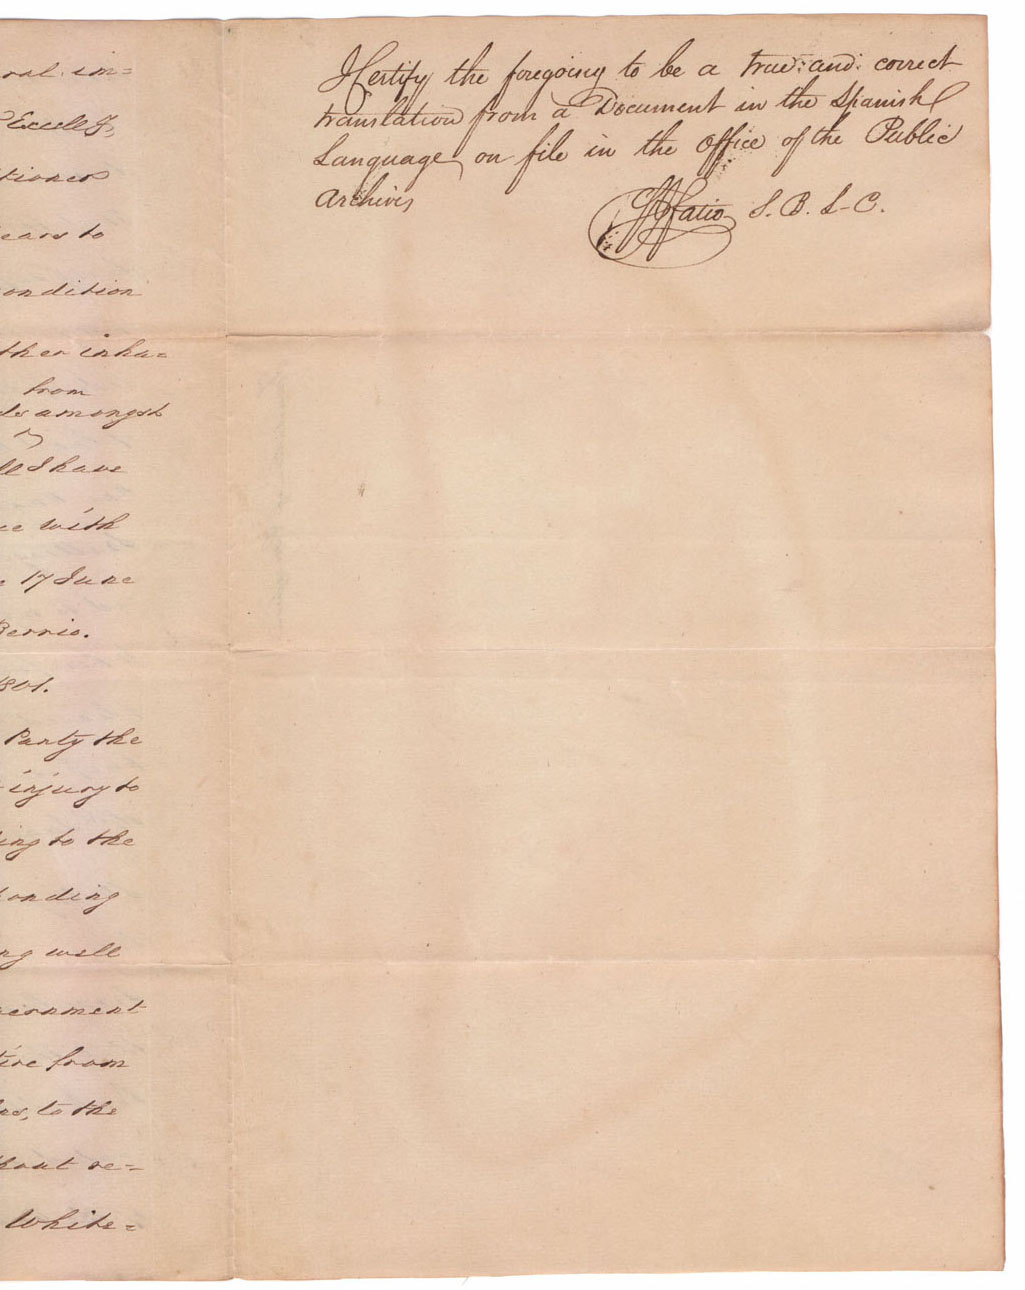 oral im=
Excell'y,
tioner
ears to
ondition
ther inha=
from
ds amongst
ll I have
ce with
e 17 June
Berrio.
1801.
Party the
injury to
ing to the
ponding
ng well
vernment
tire from
to the
hout re=
White=
I Certify the foregoing to be a true: and: correct
translation from a Document in the Spanish
Language, on file in the Office of the Public
Archives
F J Fatio S. B. L-C.